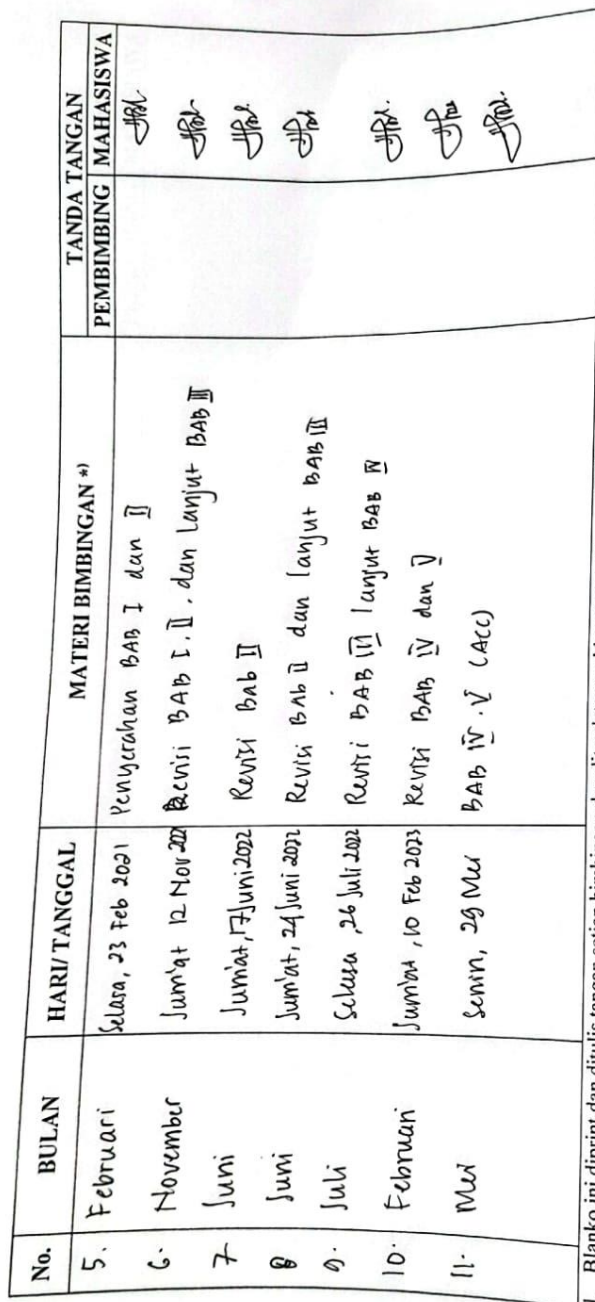 No. BULAN HARI/TANGGAL MATERI BIMBINGAN *) TANDA TANGAN
PEMBIMBING MAHASISWA
5. Februari Selasa, 23 Feb 2021 Penyerahan BAB I dan II
6. November Jum'at 12 Nov Revisi BAB I, II, dan Lanjut BAB III
7 Juni Jum'at, 17 Juni 2022 Revisi Bab II
8 Juni Jum'at, 24 Juni 2022 Revisi Bab II dan lanjut BAB III
9. Juli Selasa, 26 Juli 2022 Revisi BAB III lanjut BAB IV
10. Februari Jum'at, 10 Feb 2023 Revisi BAB IV dan V
11. Mei Senin, 29 Mei BAB IV. V (ACC)
Blanko ini diprint dan ditulis tangan setiap bimbingan